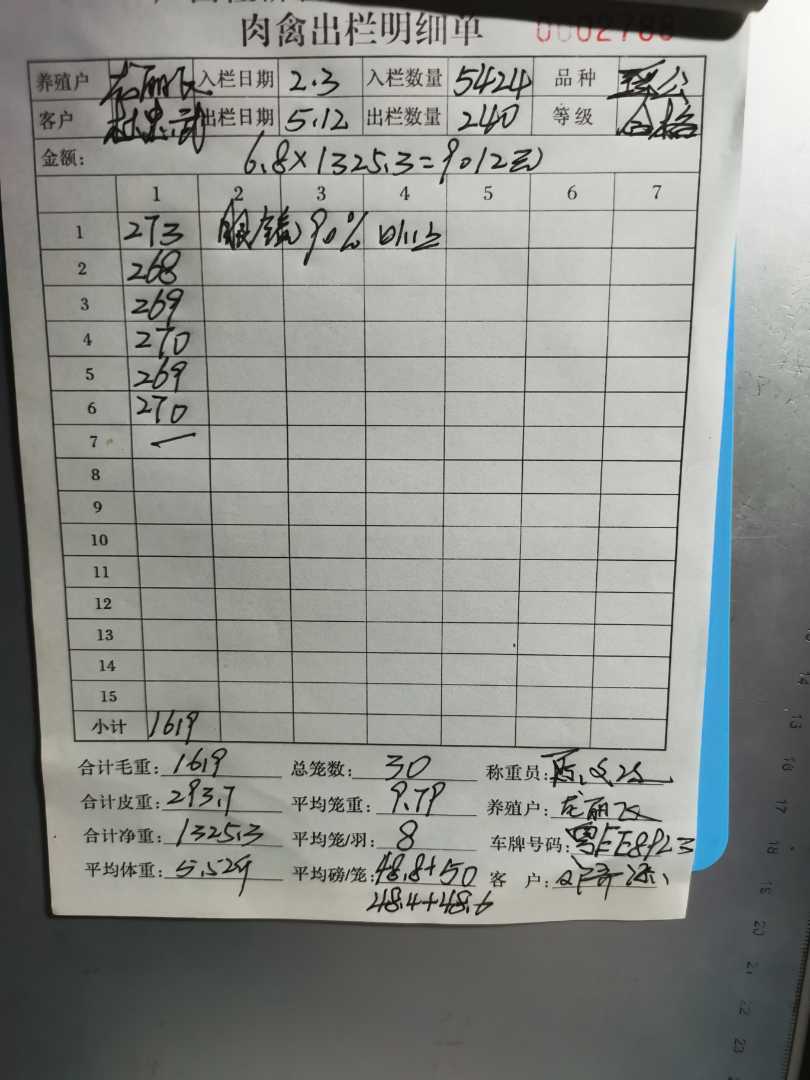 肉禽出栏明细单 0002788
养殖户 龙丽飞 入栏日期 2.3 入栏数量 5424 品种
客户 杜忠武 出栏日期 5.12 出栏数量 240 等级 合格
金额: 6.8×1325.3=9012元
1 2 3 4 5 6 7
1 273 90%
2 268
3 269
4 270
5 269
6 270
7 —
8
9
10
11
12
13
14
15
小计 1619
合计毛重: 1619 总笼数: 30 称重员:
合计皮重: 293.7 平均笼重: 9.79 养殖户: 龙丽飞
合计净重: 1325.3 平均笼/羽: 8 车牌号码:
平均体重: 5.52斤 平均磅/笼: 48.8+50 客 户:
48.4+48.6